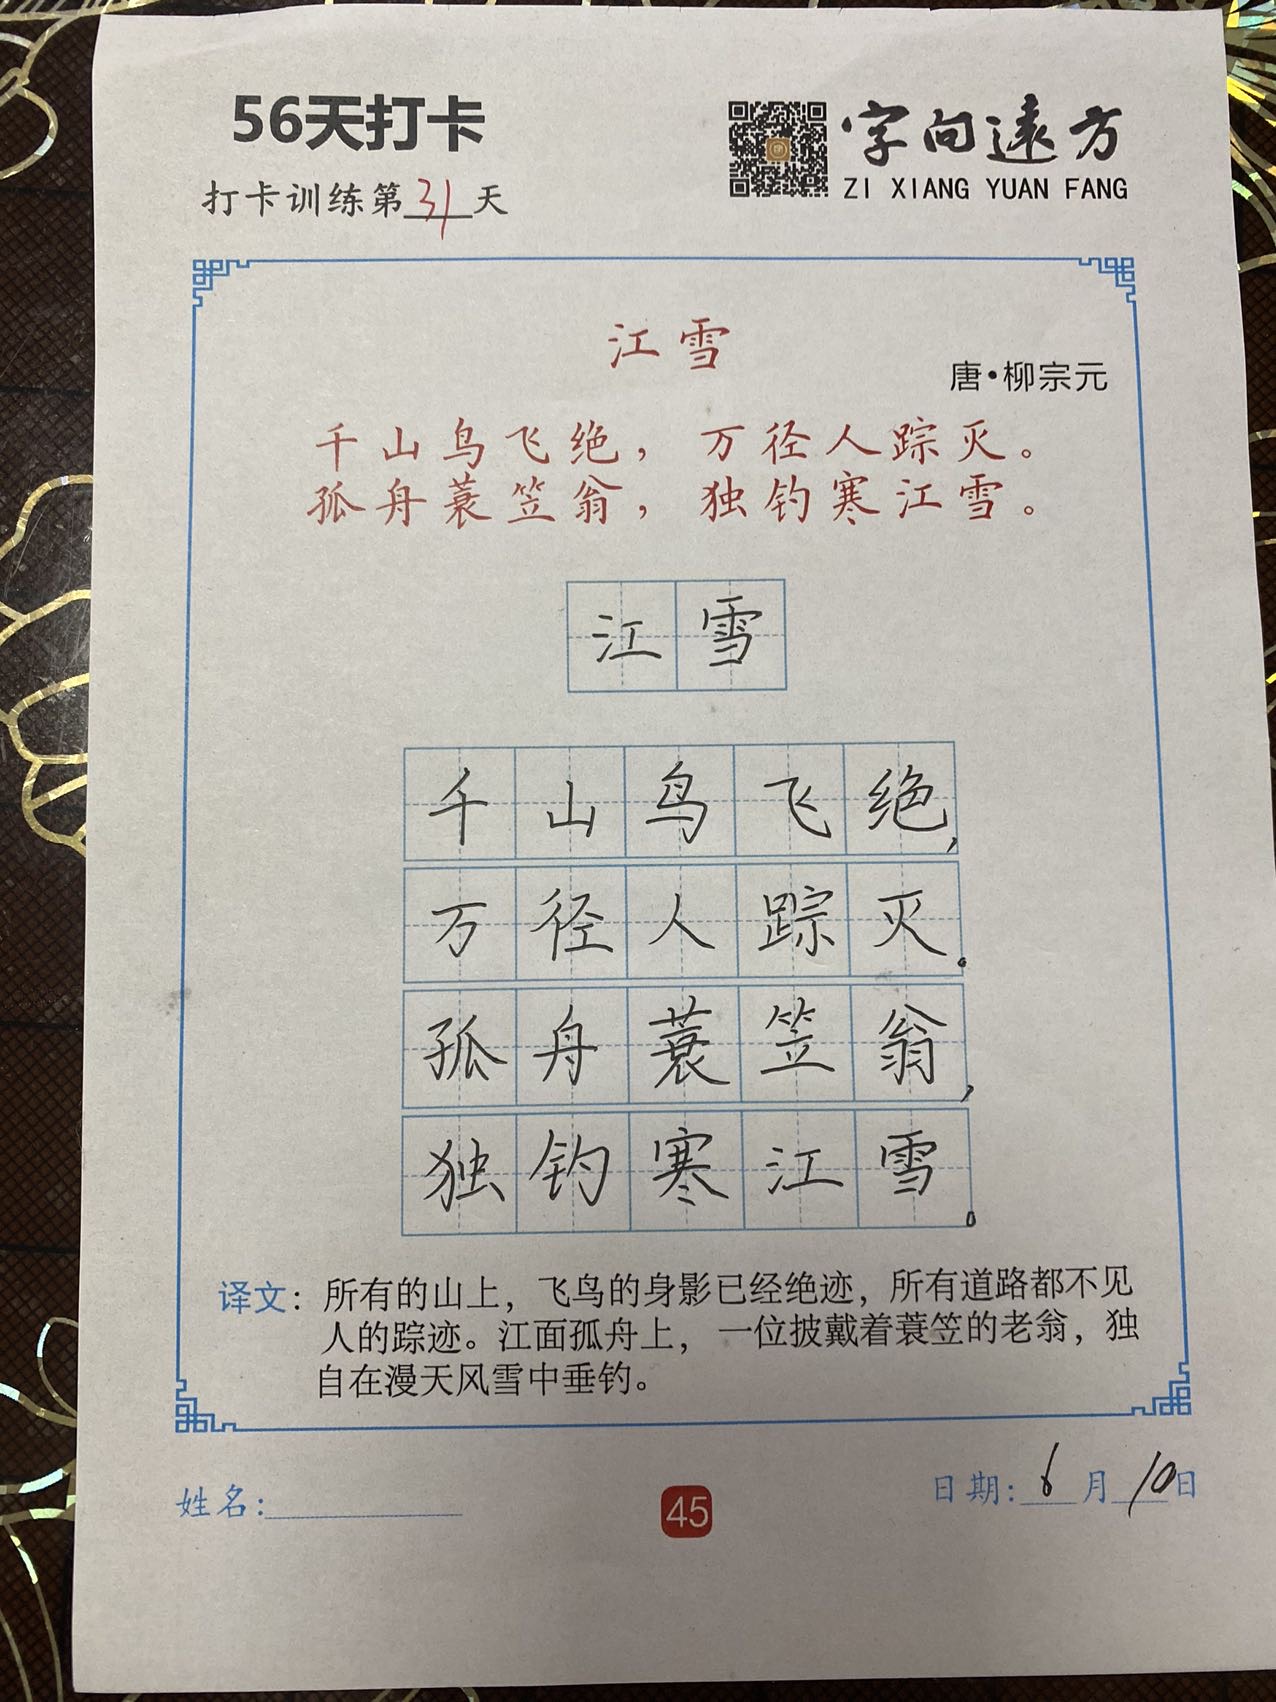 56天打卡
字向遠方
ZI XIANG YUAN FANG
打卡训练第31天
江雪
唐·柳宗元
千山鸟飞绝，万径人踪灭。
孤舟蓑笠翁，独钓寒江雪。
江雪
千山鸟飞绝，
万径人踪灭。
孤舟蓑笠翁，
独钓寒江雪。
译文：所有的山上，飞鸟的身影已经绝迹，所有道路都不见
人的踪迹。江面孤舟上，一位披戴着蓑笠的老翁，独
自在漫天风雪中垂钓。
姓名:
45
日期:6月10日